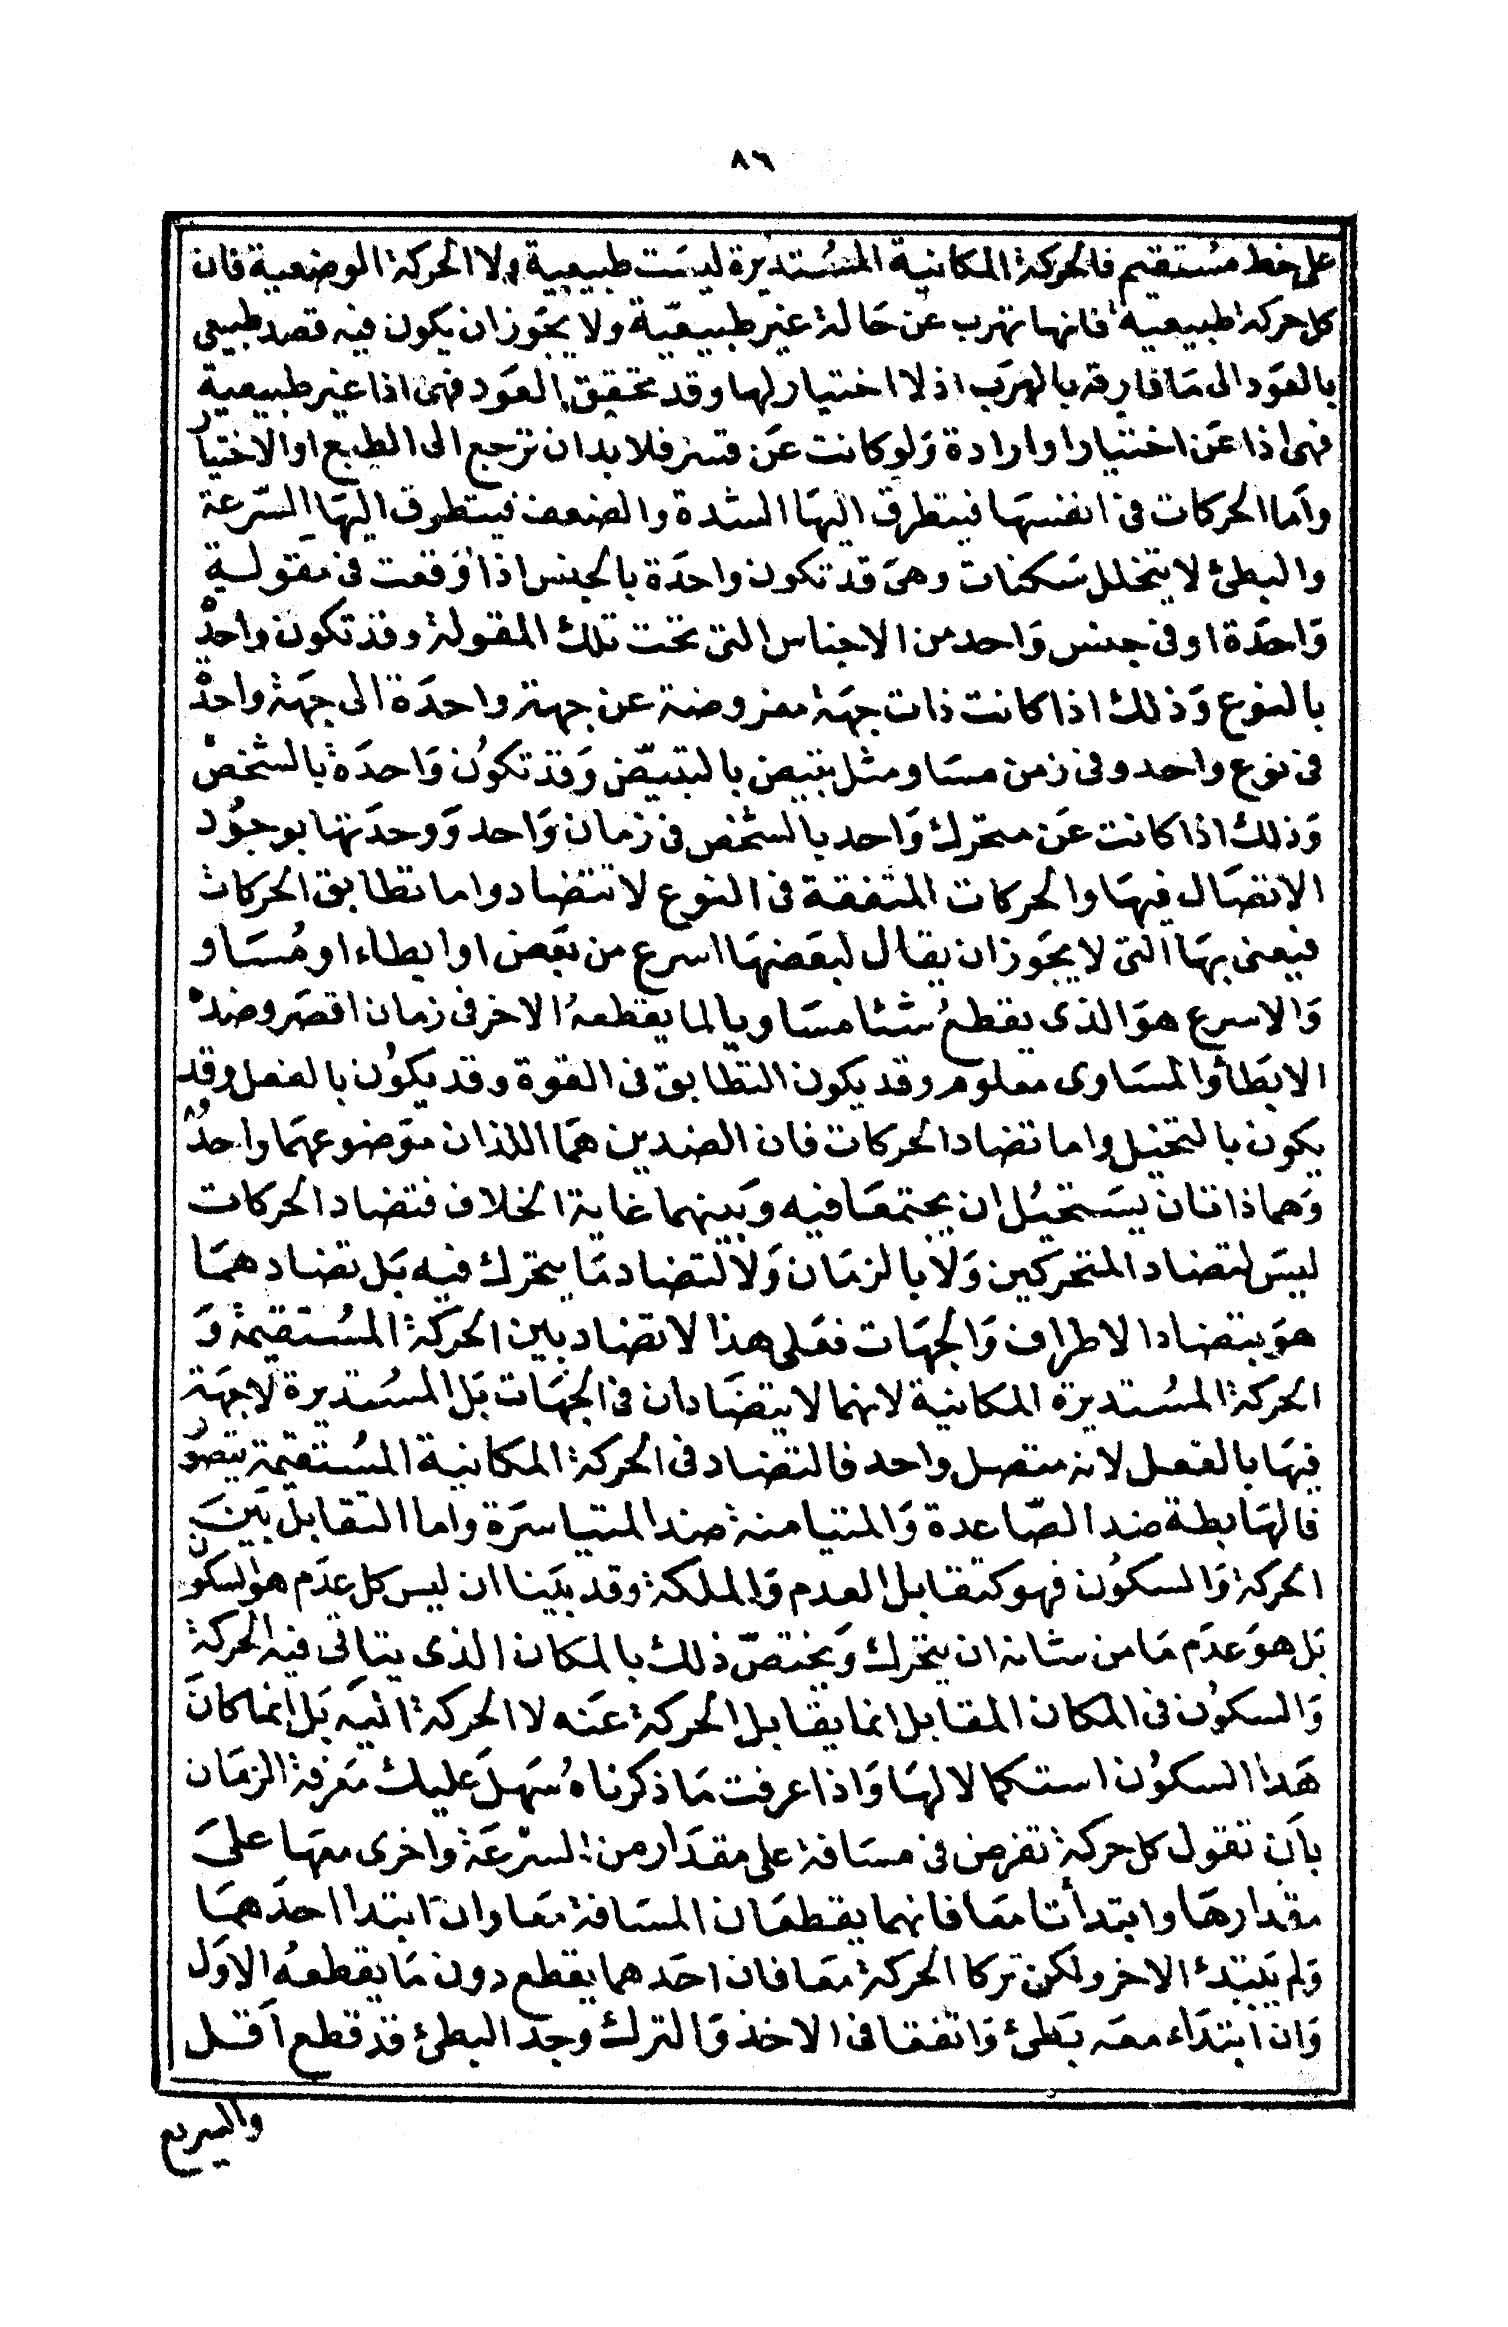 ٨٦
على خط مستقيم فالحركة المكانية المستديرة ليست طبيعية ولا الحركة الوضعية فان
كل حركة طبيعية فانها تهرب عن حالة غير طبيعية ولا يجوز ان يكون فيه قصد طبيعى
بالعود الى ما فارقه بالهرب اذ لا اختيار لها وقد تحقق العود فهى اذا غير طبيعية
فهى اذا عن اختيار او ارادة ولو كانت عن قسر فلا بد ان ترجع الى الطبع او الاختيار
واما الحركات فى انفسها فيتطرق اليها الشدة والضعف فيتطرق اليها السرعة
والبطئ لا يتخلل سكنات وهى قد تكون واحدة بالجنس اذا وقعت فى مقولة
واحدة او فى جنس واحد من الاجناس التى تحت تلك المقولة وقد تكون واحدة
بالنوع وذلك اذا كانت ذات جهة مفروضة عن جهة واحدة الى جهة واحدة
فى نوع واحد وفى زمن مساو مثل تبيض بالتبيض وقد تكون واحدة بالشخص
وذلك اذا كانت عن متحرك واحد بالشخص فى زمان واحد ووحدتها بوجود
الاتصال فيها والحركات المتفقة فى النوع لا تتضاد واما تطابق الحركات
فيعنى بها التى لا يجوز ان يقال لبعضها اسرع من بعض او ابطاء او مساو
والاسرع هو الذى يقطع شئا مساويا لما يقطعه الاخر فى زمان اقصر وضده
الابطأ والمساوى معلوم وقد يكون التطابق فى القوة وقد يكون بالفعل وقد
يكون بالتخيل واما تضاد الحركات فان الضدين هما اللذان موضوعهما واحد
وهما ذاتان يستحيل ان يجتمعا فيه وبينهما غاية الخلاف فتضاد الحركات
ليس لتضاد المتحركين ولا بالزمان ولا لتضاد ما يتحرك فيه بل تضادهما
هو بتضاد الاطراف والجهات فعلى هذا لا تضاد بين الحركة المستقيمة و
الحركة المستديرة المكانية لانهما لا يتضادان فى الجهات بل المستديرة لا جهة
فيها بالفعل لانه متصل واحد فالتضاد فى الحركة المكانية المستقيمة يتصور
فالهابطة ضد الصاعدة والمتيامنة ضد المتياسرة واما التقابل بين
الحركة والسكون فهو كتقابل العدم والملكة وقد بينا ان ليس كل عدم هو السكون
بل هو عدم ما من شانه ان يتحرك ويختص ذلك بالمكان الذى يتاتى فيه الحركة
والسكون فى المكان المقابل انما يقابل الحركة عنه لا الحركة اليه بل انما كان
هذا السكون استكمالا لها واذا عرفت ما ذكرناه سهل عليك معرفة الزمان
بان تقول كل حركة تفرض فى مسافة على مقدار من السرعة واخرى معها على
مقدارها وابتدأتا معا فانهما يقطعان المسافة معا وان ابتدا احدهما
ولم يبتدئ الاخر ولكن تركا الحركة معا فان احدهما يقطع دون ما يقطعه الاول
وان ابتداء معه بطئ واتفقا فى الاخذ والترك وجد البطئ قد قطع اقل
والسريع